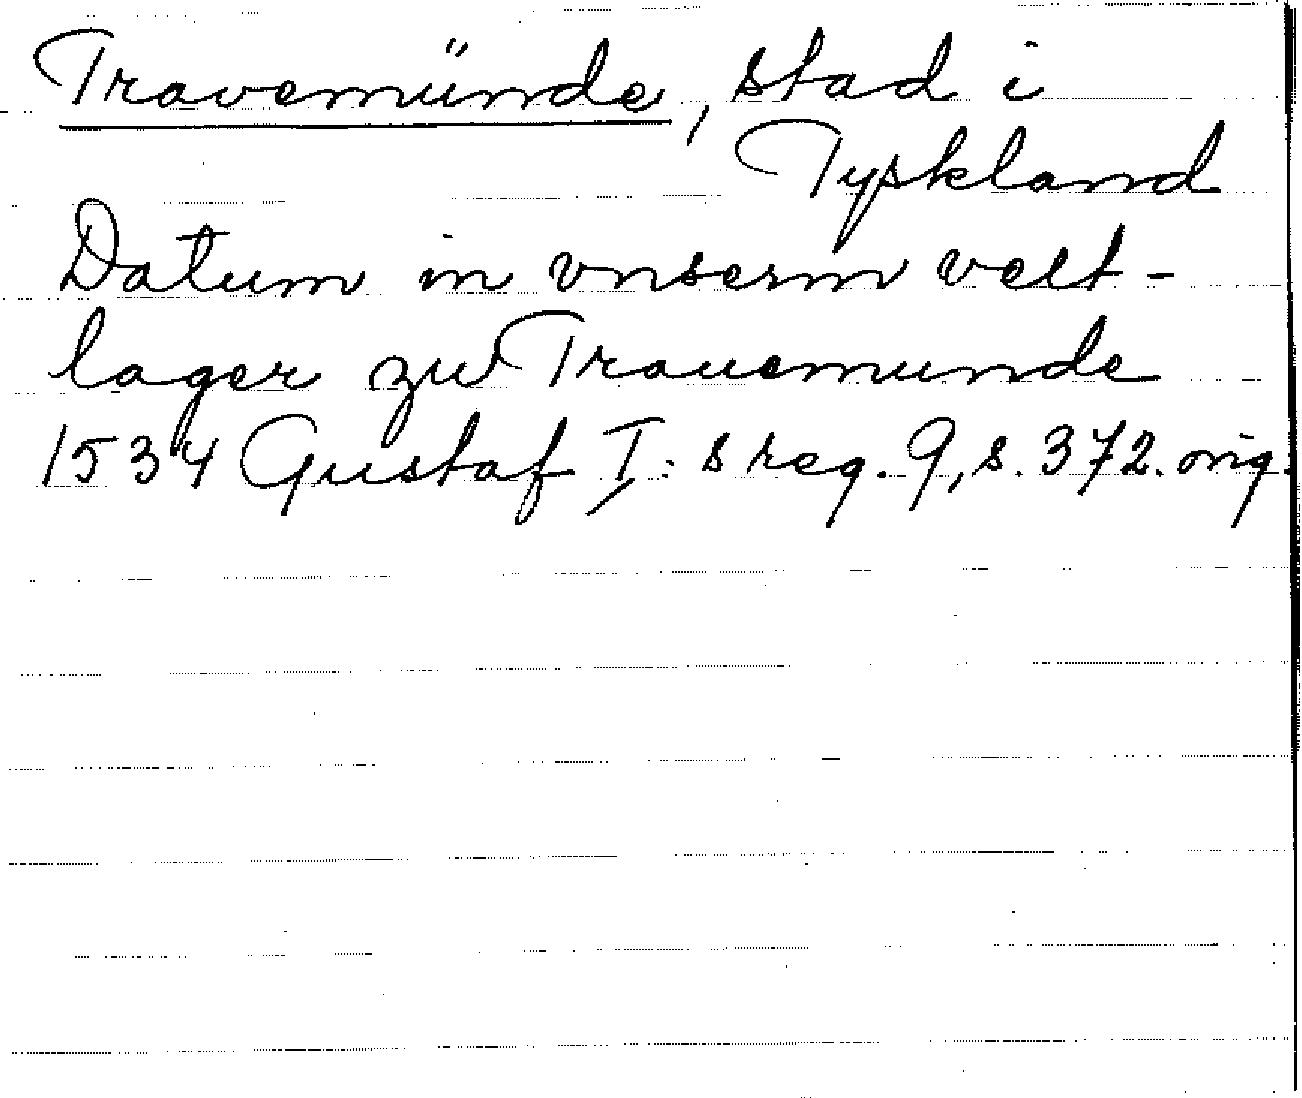 Travemünde, stad i
Tyskland
Datum in vnserm velt-
lager zu Trauemunde
1534 Gustaf I:s reg. 9, s. 372. orig.